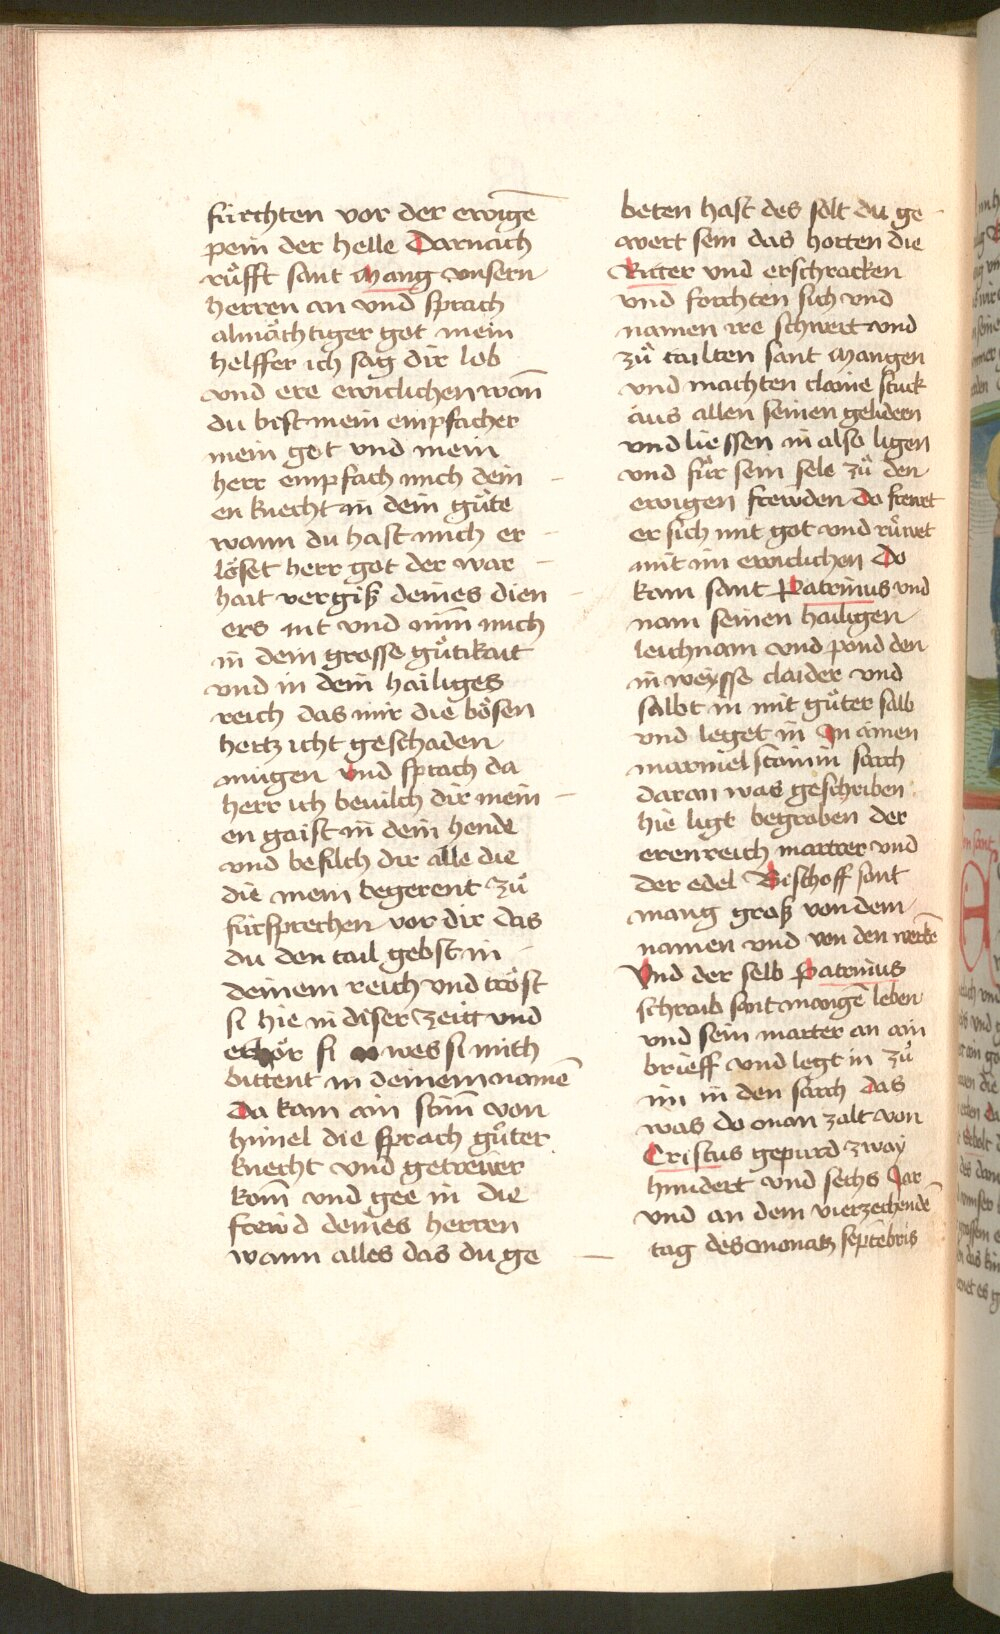 fürchten vor der ewigē
pein der helle Darnach
růfft sant Mang vnsern
herren an vnd sprach
almächtiger got mein
helffer ich sag dir lob
vnd ere ewiclichen wan̄
du bist mein empfacher
mein got vnd mein
herr empfach mich dein
en knecht in dein gůte
wann du hast mich er
löset herr got der war
hait vergiß deines dien
ers nit vnd nim̄ mich
in dein grosse gůtikait
vnd in dein hailiges
reich das mir die bösen
hertz icht geschaden
mügen vnd sprach da
herr ich beuilch dir mein
en gaist in dein hende
vnd befilch dir alle die
die mein begerent zů
fürsprechen vor dir das
du den tail gebst in
deinem reich vnd tröst
si hie in diser zeitt vnd
erhör si wes si mich
bittent in deinem namē
Da kam ain stim̄ von
himel die sprach gůter
knecht vnd getrewer
kom̄ vnd gee in die
frewd deines herren
wann alles das du ge
beten hast des solt du ge
wert sein das horten die
Ritter vnd erschracken
vnd forchten sich vnd
namen ire schwert vnd
zů tailten sant Mangen
vnd machten claine stuck
aus allen seinen gelidern
vnd liessen in also ligen
vnd für sein sele zů den
ewigen frewden Do frewt
er sich mit got vnd růwet
mit im ewiclichen Do
kam sant Patrinius vnd
nam seinen hailigen
leichnam vnd pond den
in weysse claider vnd
salbt in mit gůter salb
vnd leget in In ainen
marmelstainin sarch
daran was geschriben
hie ligt begraben der
erenreich martrer vnd
der edel Bischoff sant
mang groß von dem
namen vnd von den werkē
Vnd der selb Patrinius
schraib sant mangē leben
vnd sein marter an ain
brieff vnd legt in zů
im in den sarch das
was do man zalt von
Cristus gepurd zway
hundert vnd sechs Jar
vnd an dem vierzechendē
tag des monatz septēbris